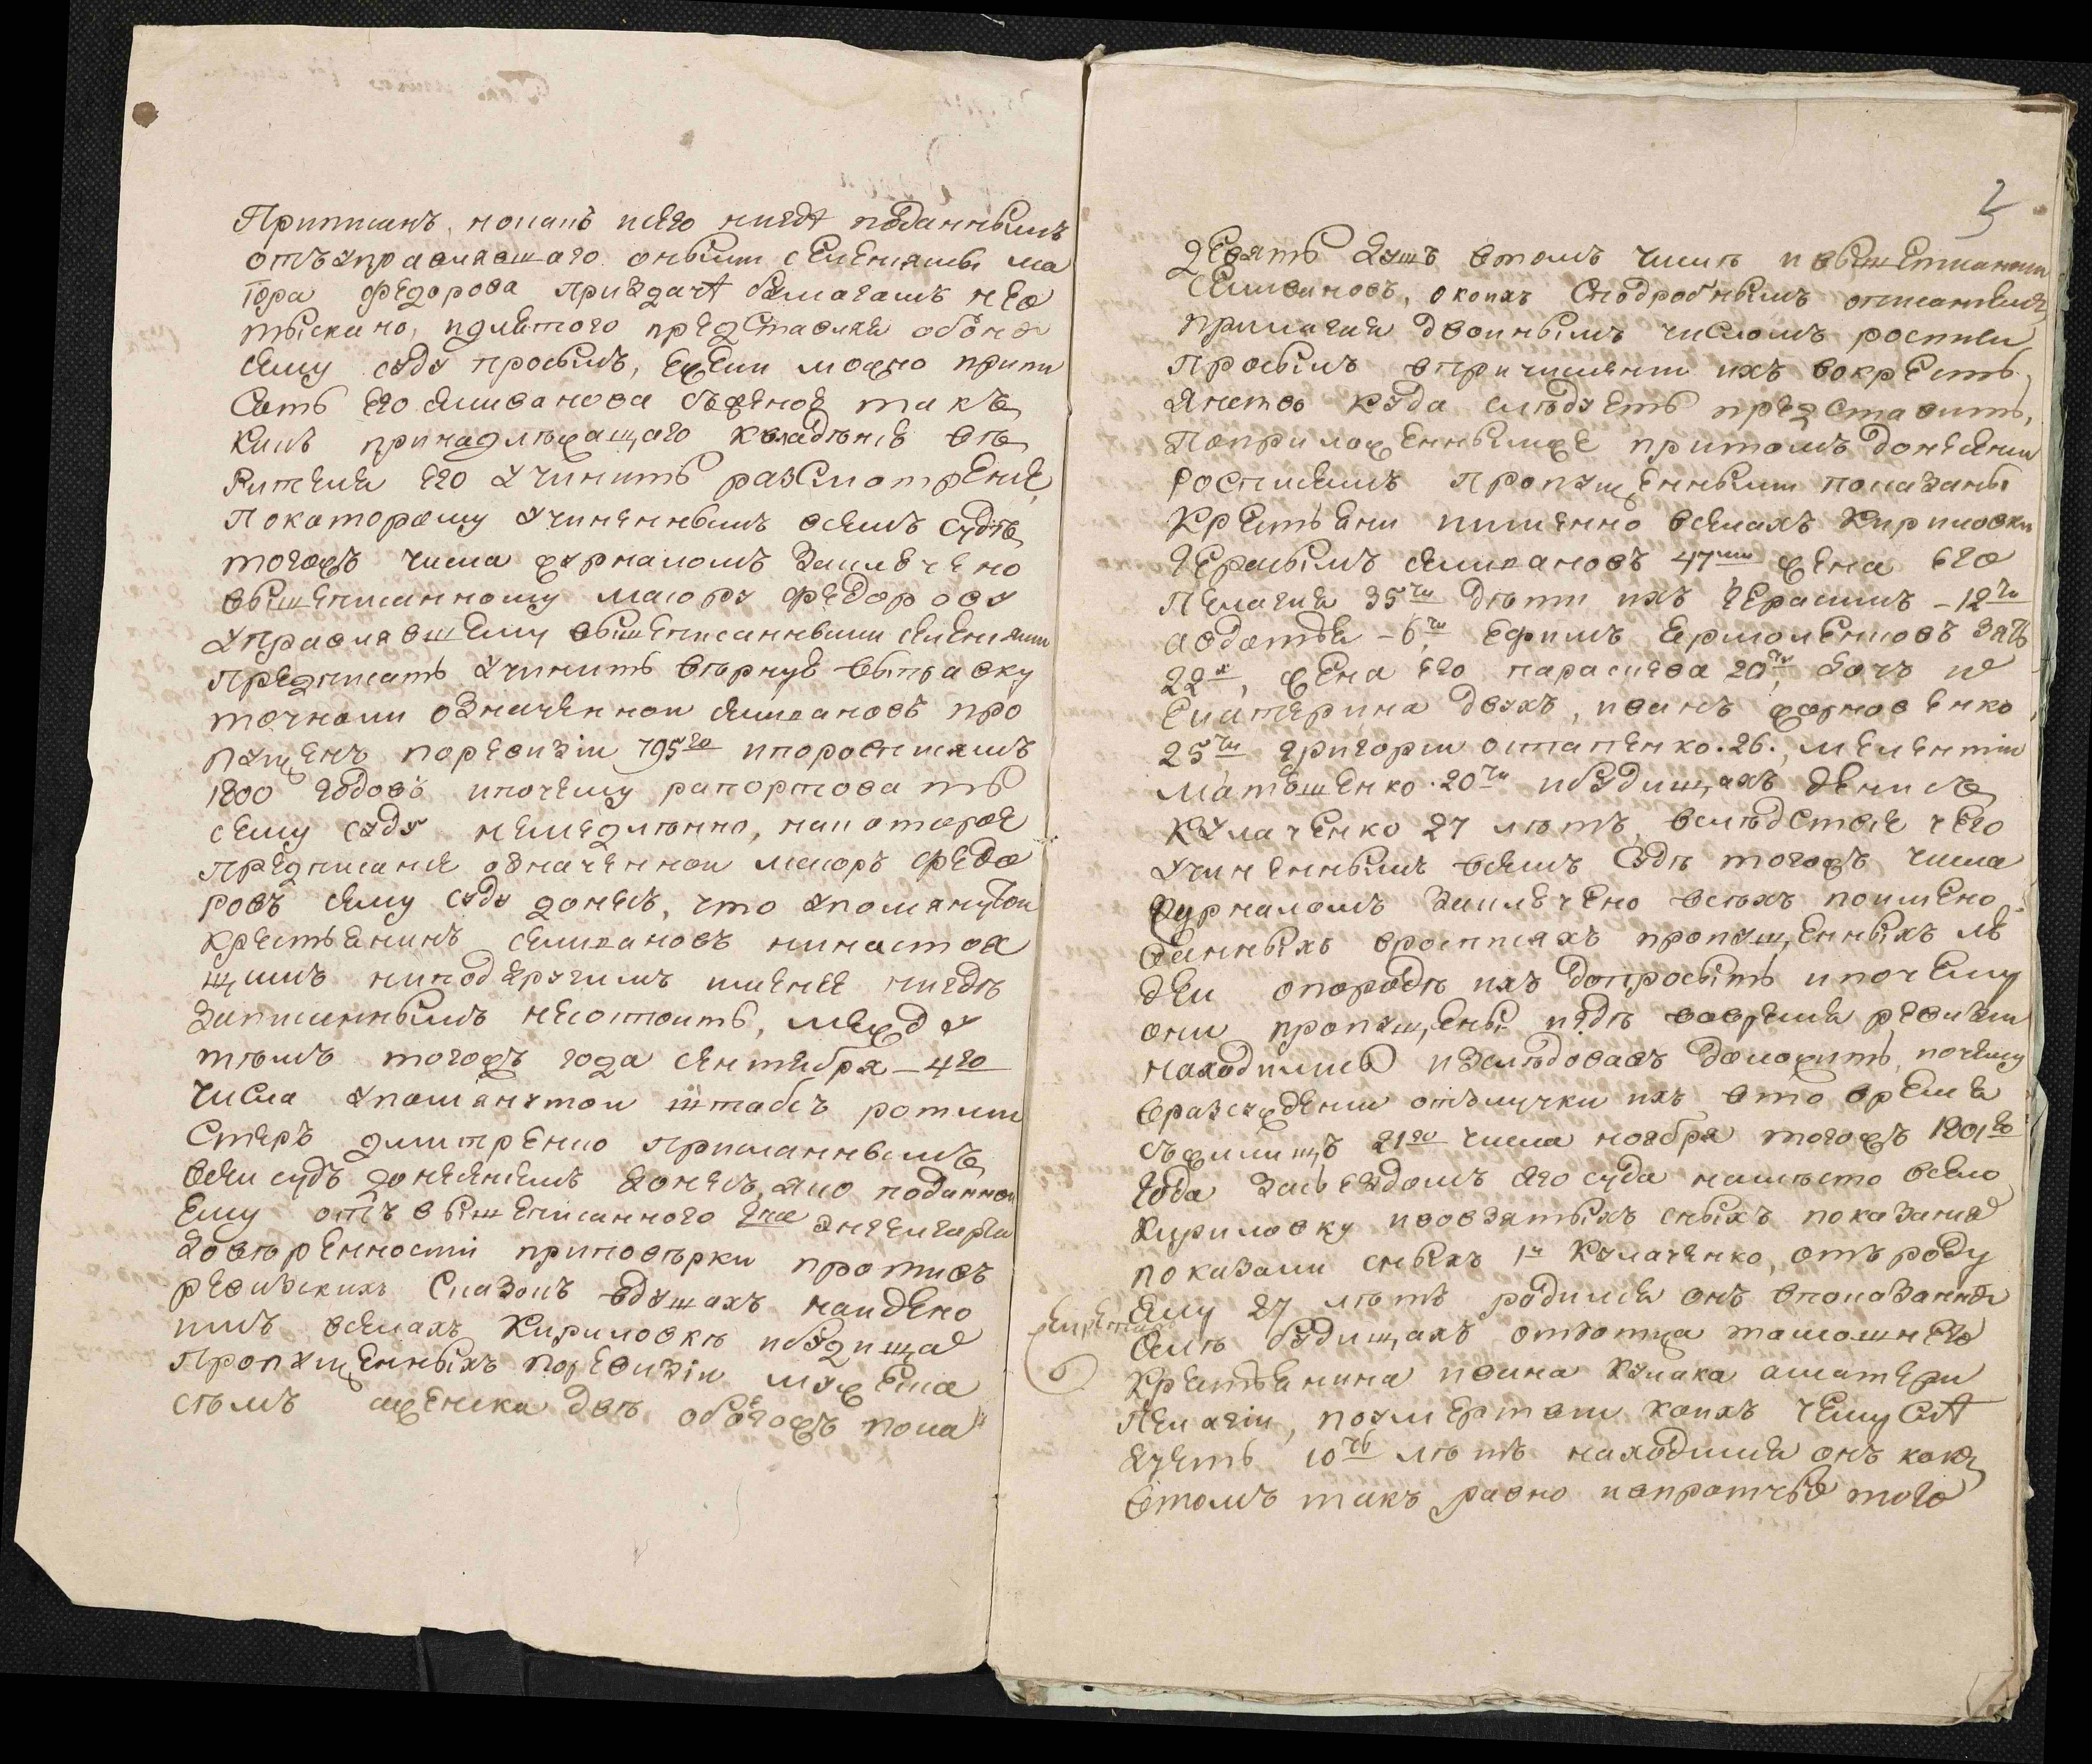 Приписанъ, нонапъ исего нигдѣ поданнымъ
отъ управлявшаго оными селениямы ма
іора Федорова приздачѣ бумагамъ неο
тыскано, идлятого представляя обоне
сему суду просымъ, ежели можно припи
сать его Селиванова сженою такъ
какъ принадлежащаго квладѣнію вѣ
рителя его учинить разсмотрение
Покоторому учиненнымъ всемъ судѣ
тогожъ числа журналомъ заключено
вышеписанному маиору Федорову
управлявшему вышеписанными селениями
предписать учинить вѣрную выправку
точноли означенной Селивановъ про
пущенъ поревизіи 795го ипоросписямъ
1800 годовъ ипочему рапортовать
сему суду немедлѣнно, накоторое
предписание означенной маиоръ Федо
ровъ сему суду донесъ, что упомянутой
крестьянинъ Селивановъ нинастоя
щимъ ниподъ другимъ имянее нигдѣ
записаннымъ несостоитъ, между
тѣмъ тогожъ года сентября 4го
числа упомянутой штабсъ ротми
стеръ Дмитренко присланнымъ
всей судъ донесениемъ донесъ, яко поданной
ему отъ вышеписанного Энгелгарта
доверенности приповѣрки противъ
ревизскихъ сказокъ вдушахъ найдено
имъ вселахъ Кириловкѣ ибудища
пропущенныхъ поревизіи мужеска
семъ аженска двѣ обоегожъ пола
девять душъ втомъ числѣ ивышеписанной
Селивановъ, окоихъ сподробнымъ описаниемъ
прилагая двойнымъ числомъ росписи
просымъ опричислении ихъ вокресть
янство куда слѣдуетъ представить,
Поприложеннымже притомъ донесении
росписямъ пропущенными показаны
крестьяни имянно вселахъ Кириловки
Герасымъ Селивановъ 47ми жена его
Пелагия 35ти дѣти ихъ Герасимъ - 12ти
Авдотья - 6ти, Ефимъ Ермоленковъ зять
22х, жена его Парасиева 20ти, дочъ ихъ
Екатерина двухъ, Иванъ Жорновенко
25ти Григории Остапенко. 26., Мелентіи
Матяшенко. 20ти ибудищахъ Денисъ
Кулаченко 27 лѣтъ, вслѣдствие чего
учиненнымъ всемъ судѣ тогожъ числа
журналомъ заключено всѣхъ поимено
ванныхъ вросписяхъ пропущенныхъ лю
дей опородѣ ихъ допросыть ипочему
они пропущены игдѣ вовремя ревизии
находились изслѣдовавъ доложить, почему
вразсуждении отълучки ихъ вто время
сжилищъ 21го числа ноября тогожъ 1801го
года засѣдомъ его суда намѣсто всело
Кириловку ивовзятыхъ сныхъ показание
показали сныхъ 1й Кулаченко, отъ роду
ему 27 лѣтъ родился онъ впоказанномъ
селѣ будищахъ ототца тамошнего
крестьянина Ивана Кулака аматери
Пелагіи, поумертвии коихъ чемусѧ
будетъ 10ть лѣтъ находился онъ какъ
втомъ такъ равно ивпротчыхъ того